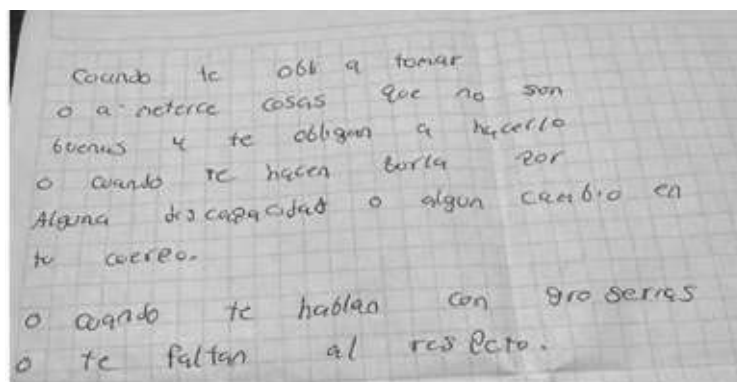 Cuando te obli a tomar
o a meterce cosas que no son
buenas y te obligan a hacerlo
o cuando te hacen burla por
Alguna discapacidad o algun cambio en
tu cuerpo.
o cuando te hablan con groserias
o te faltan al respecto.